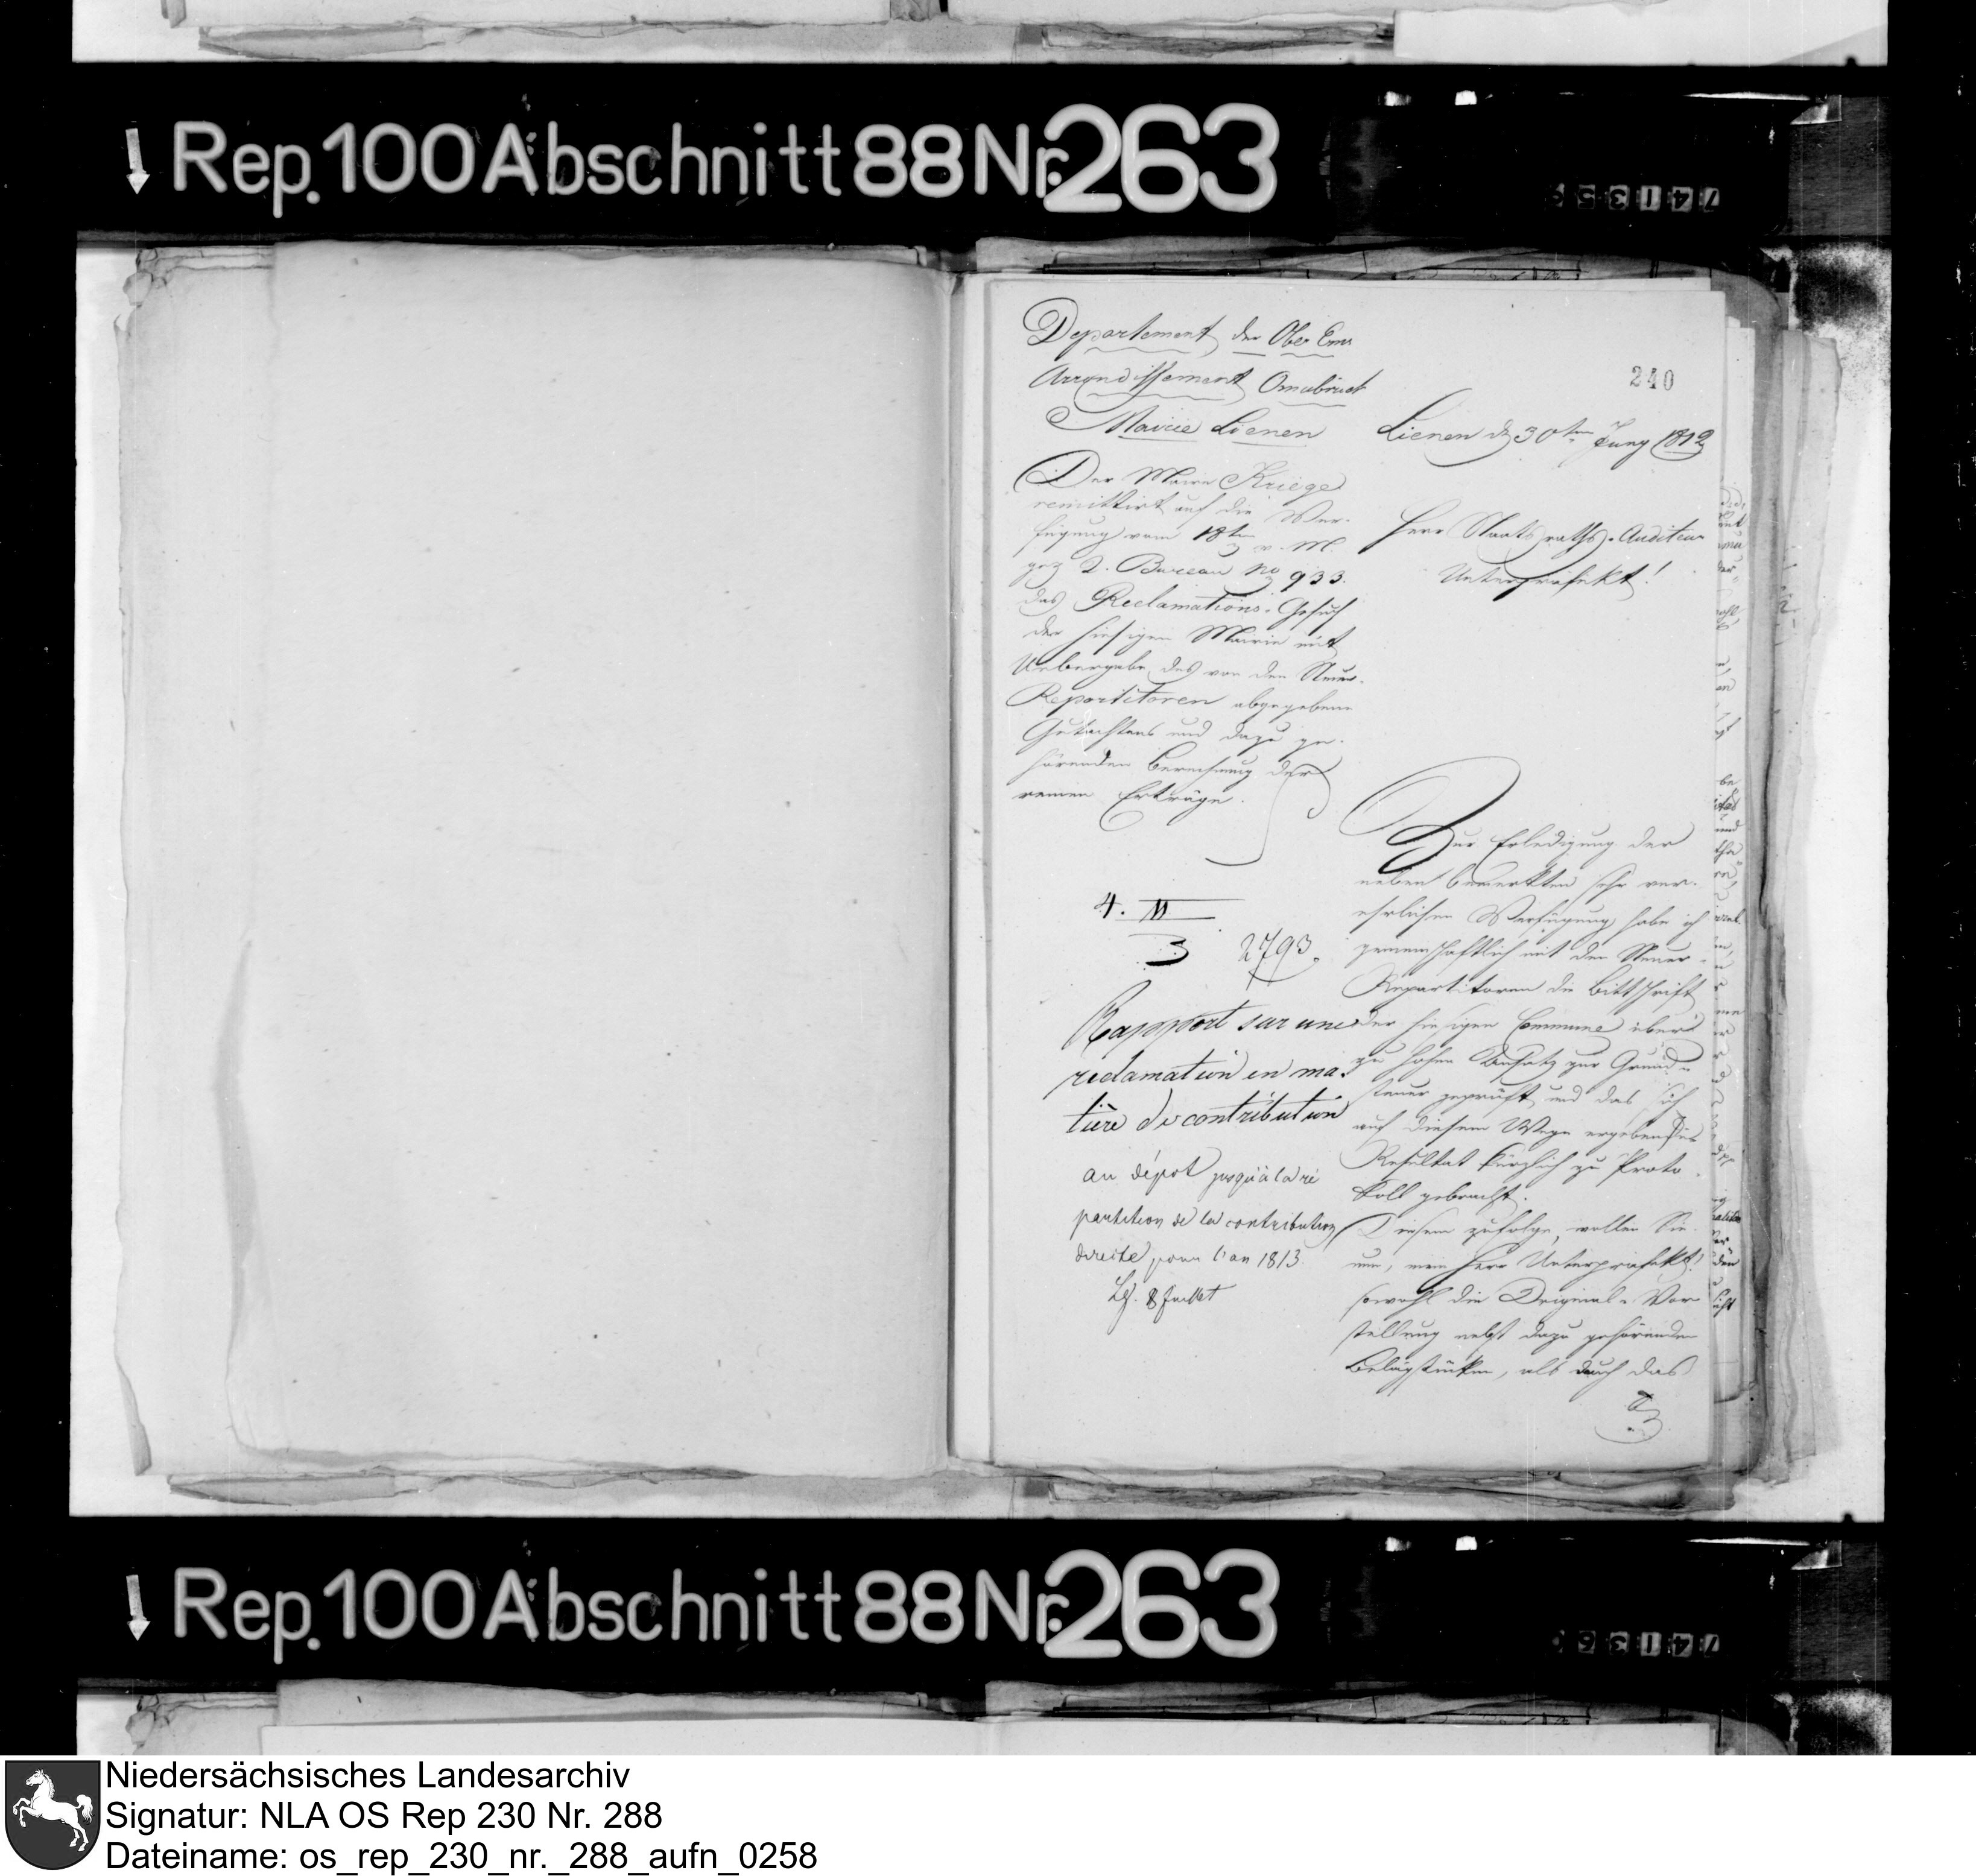 Rep. 100 Abschnitt 88 Nr. 263
74135
Departement der Ober Ems
Arrondissement Osnabrück
Mairie Lienen
240
Lienen d 30ten Juny 1812
Der Maire Kriege
remittirt auf die Ver-
fügung vom 18ten
v. M.
2. Bureau No 933.
das Reclamations-Gesuch
der hiesigen Mairie mit
Uebergabe des von den Steuer-
Repartitoren abgegebenen
Gutachtens und dazu ge-
hörenden Berechnung der
reinen Erträge.
Herr Staatsraths-Auditeur
Unterpräfekt!
4.
3
2793.
Rapport sur une
reclamation en ma-
tière de contribution
au dépot jusqu'à la ré
partition de la contribution
directe pour l'an 1813.
8 Juillet
Zur Erledigung der
neben bemerkten sehr ver-
ehrlichen Verfügung habe ich
gemeinschaftlich mit den Steuer-
Repartitoren die Bittschrift
der hiesigen Commune über
zu hohen Ansatz zur Grund-
steuer geprüft und das sich
auf diesem Wege ergebende
Resultat kürzlich zu Proto-
koll gebracht.
Diesem zufolge, wollen Sie
nun, mein Herr Unterpräfekt!
sowohl die Original-Vor
stellung nebst dazu gehörenden
Belägstücken, als auch das
Rep. 100 Abschnitt 88 Nr. 263
74136
Niedersächsisches Landesarchiv
Signatur: NLA OS Rep 230 Nr. 288
Dateiname: os_rep_230_nr._288_aufn_0258